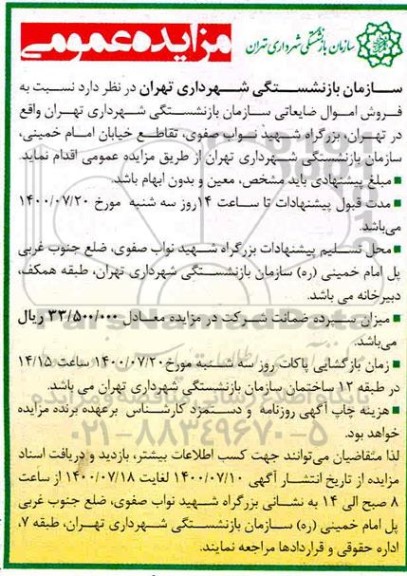 سازمان بازنشستگی شهرداری تهران
مزایده عمومی
سازمان بازنشستگی شهرداری تهران در نظر دارد نسبت به
فروش اموال ضایعاتی سازمان بازنشستگی شهرداری تهران واقع
در تهران، بزرگراه شهید نواب صفوی، تقاطع خیابان امام خمینی،
سازمان بازنشستگی شهرداری تهران از طریق مزایده عمومی اقدام نماید.
■ مبلغ پیشنهادی باید مشخص، معین و بدون ابهام باشد.
■ مدت قبول پیشنهادات تا ساعت ۱۴ روز سه شنبه مورخ ۱۴۰۰/۰۷/۲۰
می‌باشد.
■ محل تسلیم پیشنهادات بزرگراه شهید نواب صفوی، ضلع جنوب غربی
پل امام خمینی (ره) سازمان بازنشستگی شهرداری تهران، طبقه همکف،
دبیرخانه می باشد.
■ میزان سپرده ضمانت شرکت در مزایده معادل ۳۳/۵۰۰/۰۰۰ ریال
می‌باشد.
■ زمان بازگشایی پاکات روز سه شنبه مورخ ۱۴۰۰/۰۷/۲۰ ساعت ۱۴/۱۵
در طبقه ۱۲ ساختمان سازمان بازنشستگی شهرداری تهران می باشد.
■ هزینه چاپ آگهی روزنامه و دستمزد کارشناس برعهده برنده مزایده
خواهد بود.
لذا متقاضیان می‌توانند جهت کسب اطلاعات بیشتر، بازدید و دریافت اسناد
مزایده از تاریخ انتشار آگهی ۱۴۰۰/۰۷/۱۰ لغایت ۱۴۰۰/۰۷/۱۸ از ساعت
۸ صبح الی ۱۴ به نشانی بزرگراه شهید نواب صفوی، ضلع جنوب غربی
پل امام خمینی (ره) سازمان بازنشستگی شهرداری تهران، طبقه ۷،
اداره حقوقی و قراردادها مراجعه نمایند.
۰۲۱-۸۸۳۴۹۶۷۰-۵